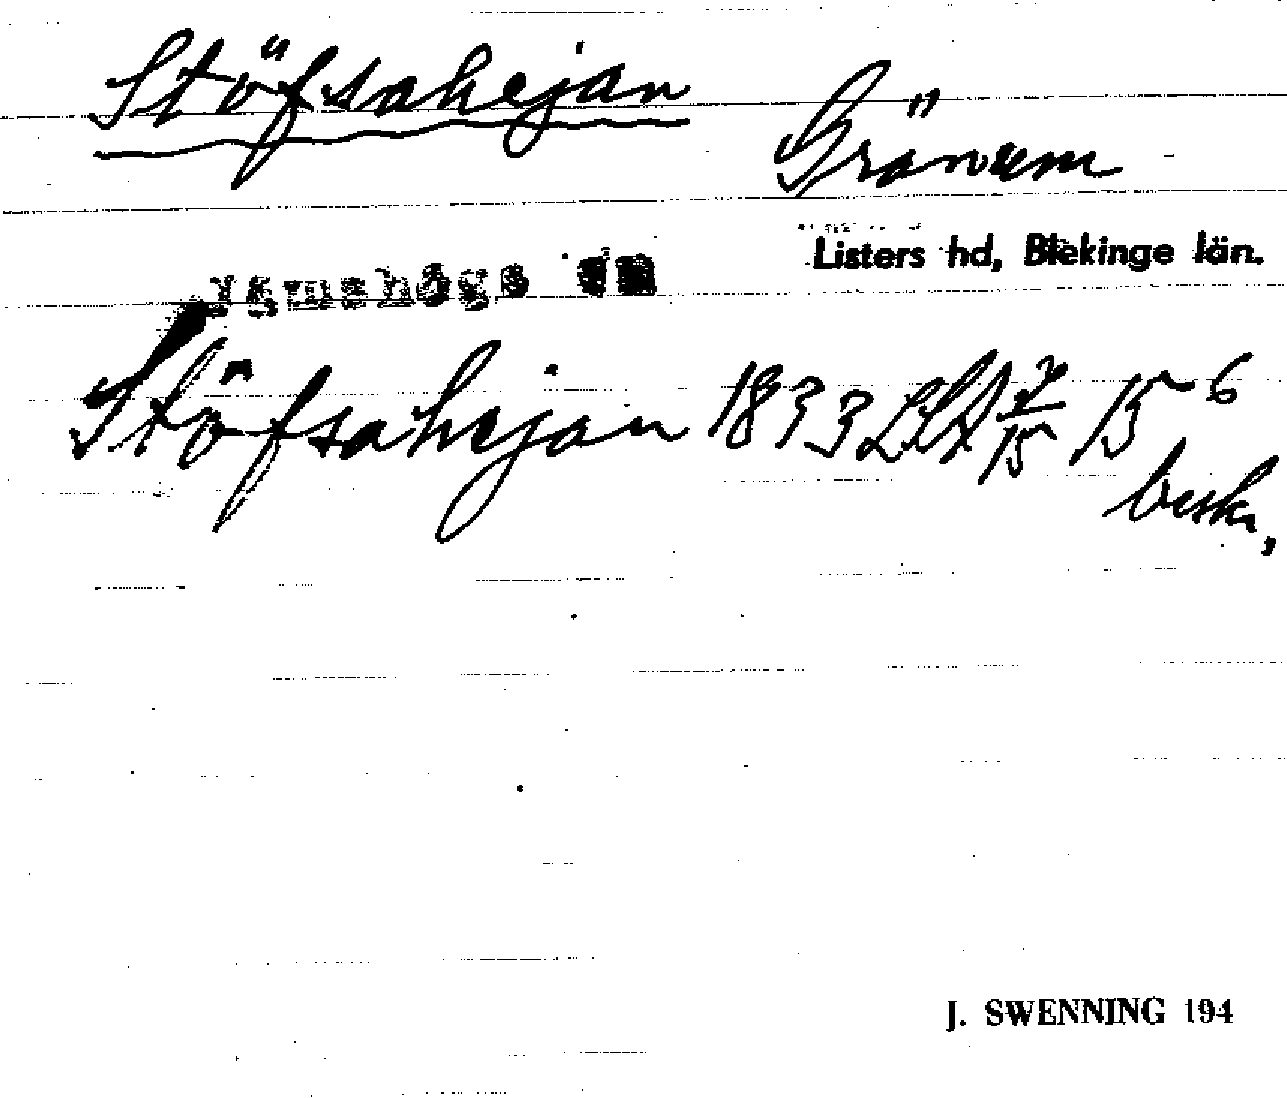 Stöfsahejan
Grönum
Listers hd, Blekinge län.
Jämshögs sn
Stöfsahejan 1833 LSA 7/15 15 6
beskr,
J. SWENNING 194